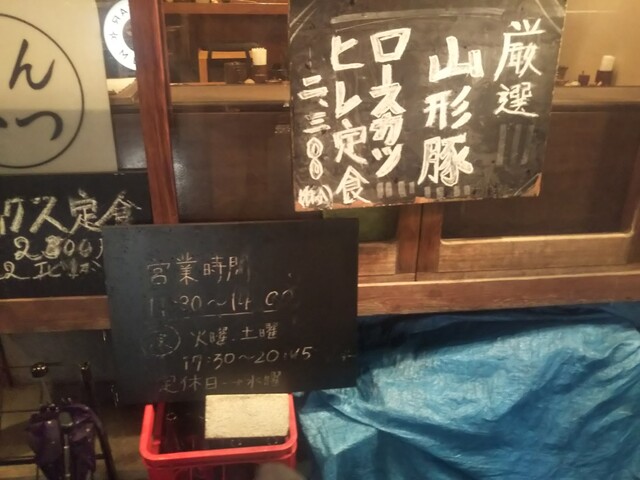 厳選
山形豚
ロースカツ
ヒレ定食
二、三〇〇
営業時間
11:30～14:00
火曜、土曜
17:30～20:45
定休日→水曜
定食
2300円
ん
つ